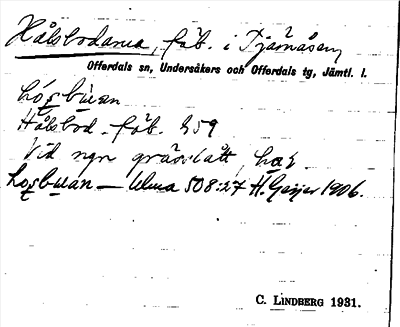 Hålsbodarna, fäb. i Tjärnåsen
Offerdals sn, Undersåkers och Offerdals tg, Jämtl. l.
lósbuan
Hålsbod. fäb. 859
Vid ngn grässlått
losbuan — Ulma 508:27 H. Geijer 1906.
C. LINDBERG 1931.